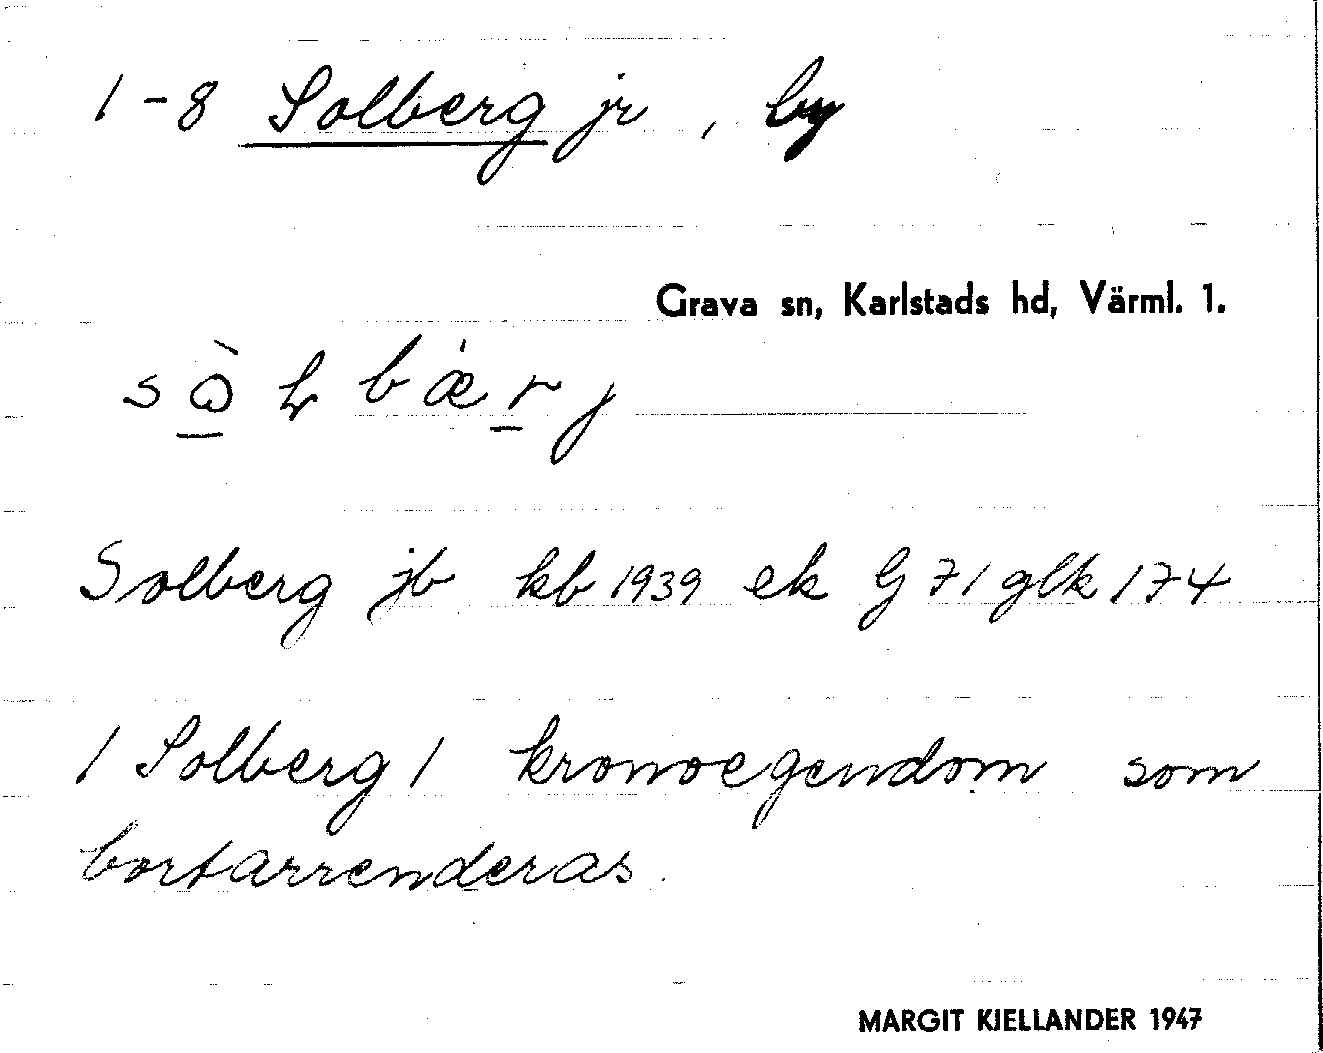 1-8 Solberg jr, by
Grava sn, Karlstads hd, Värml. 1.
Solberg jb kb 1939 ek G 71 glk 174
1 Solberg 1 kronoegendom som
bortarrenderas.
MARGIT KJELLANDER 1947